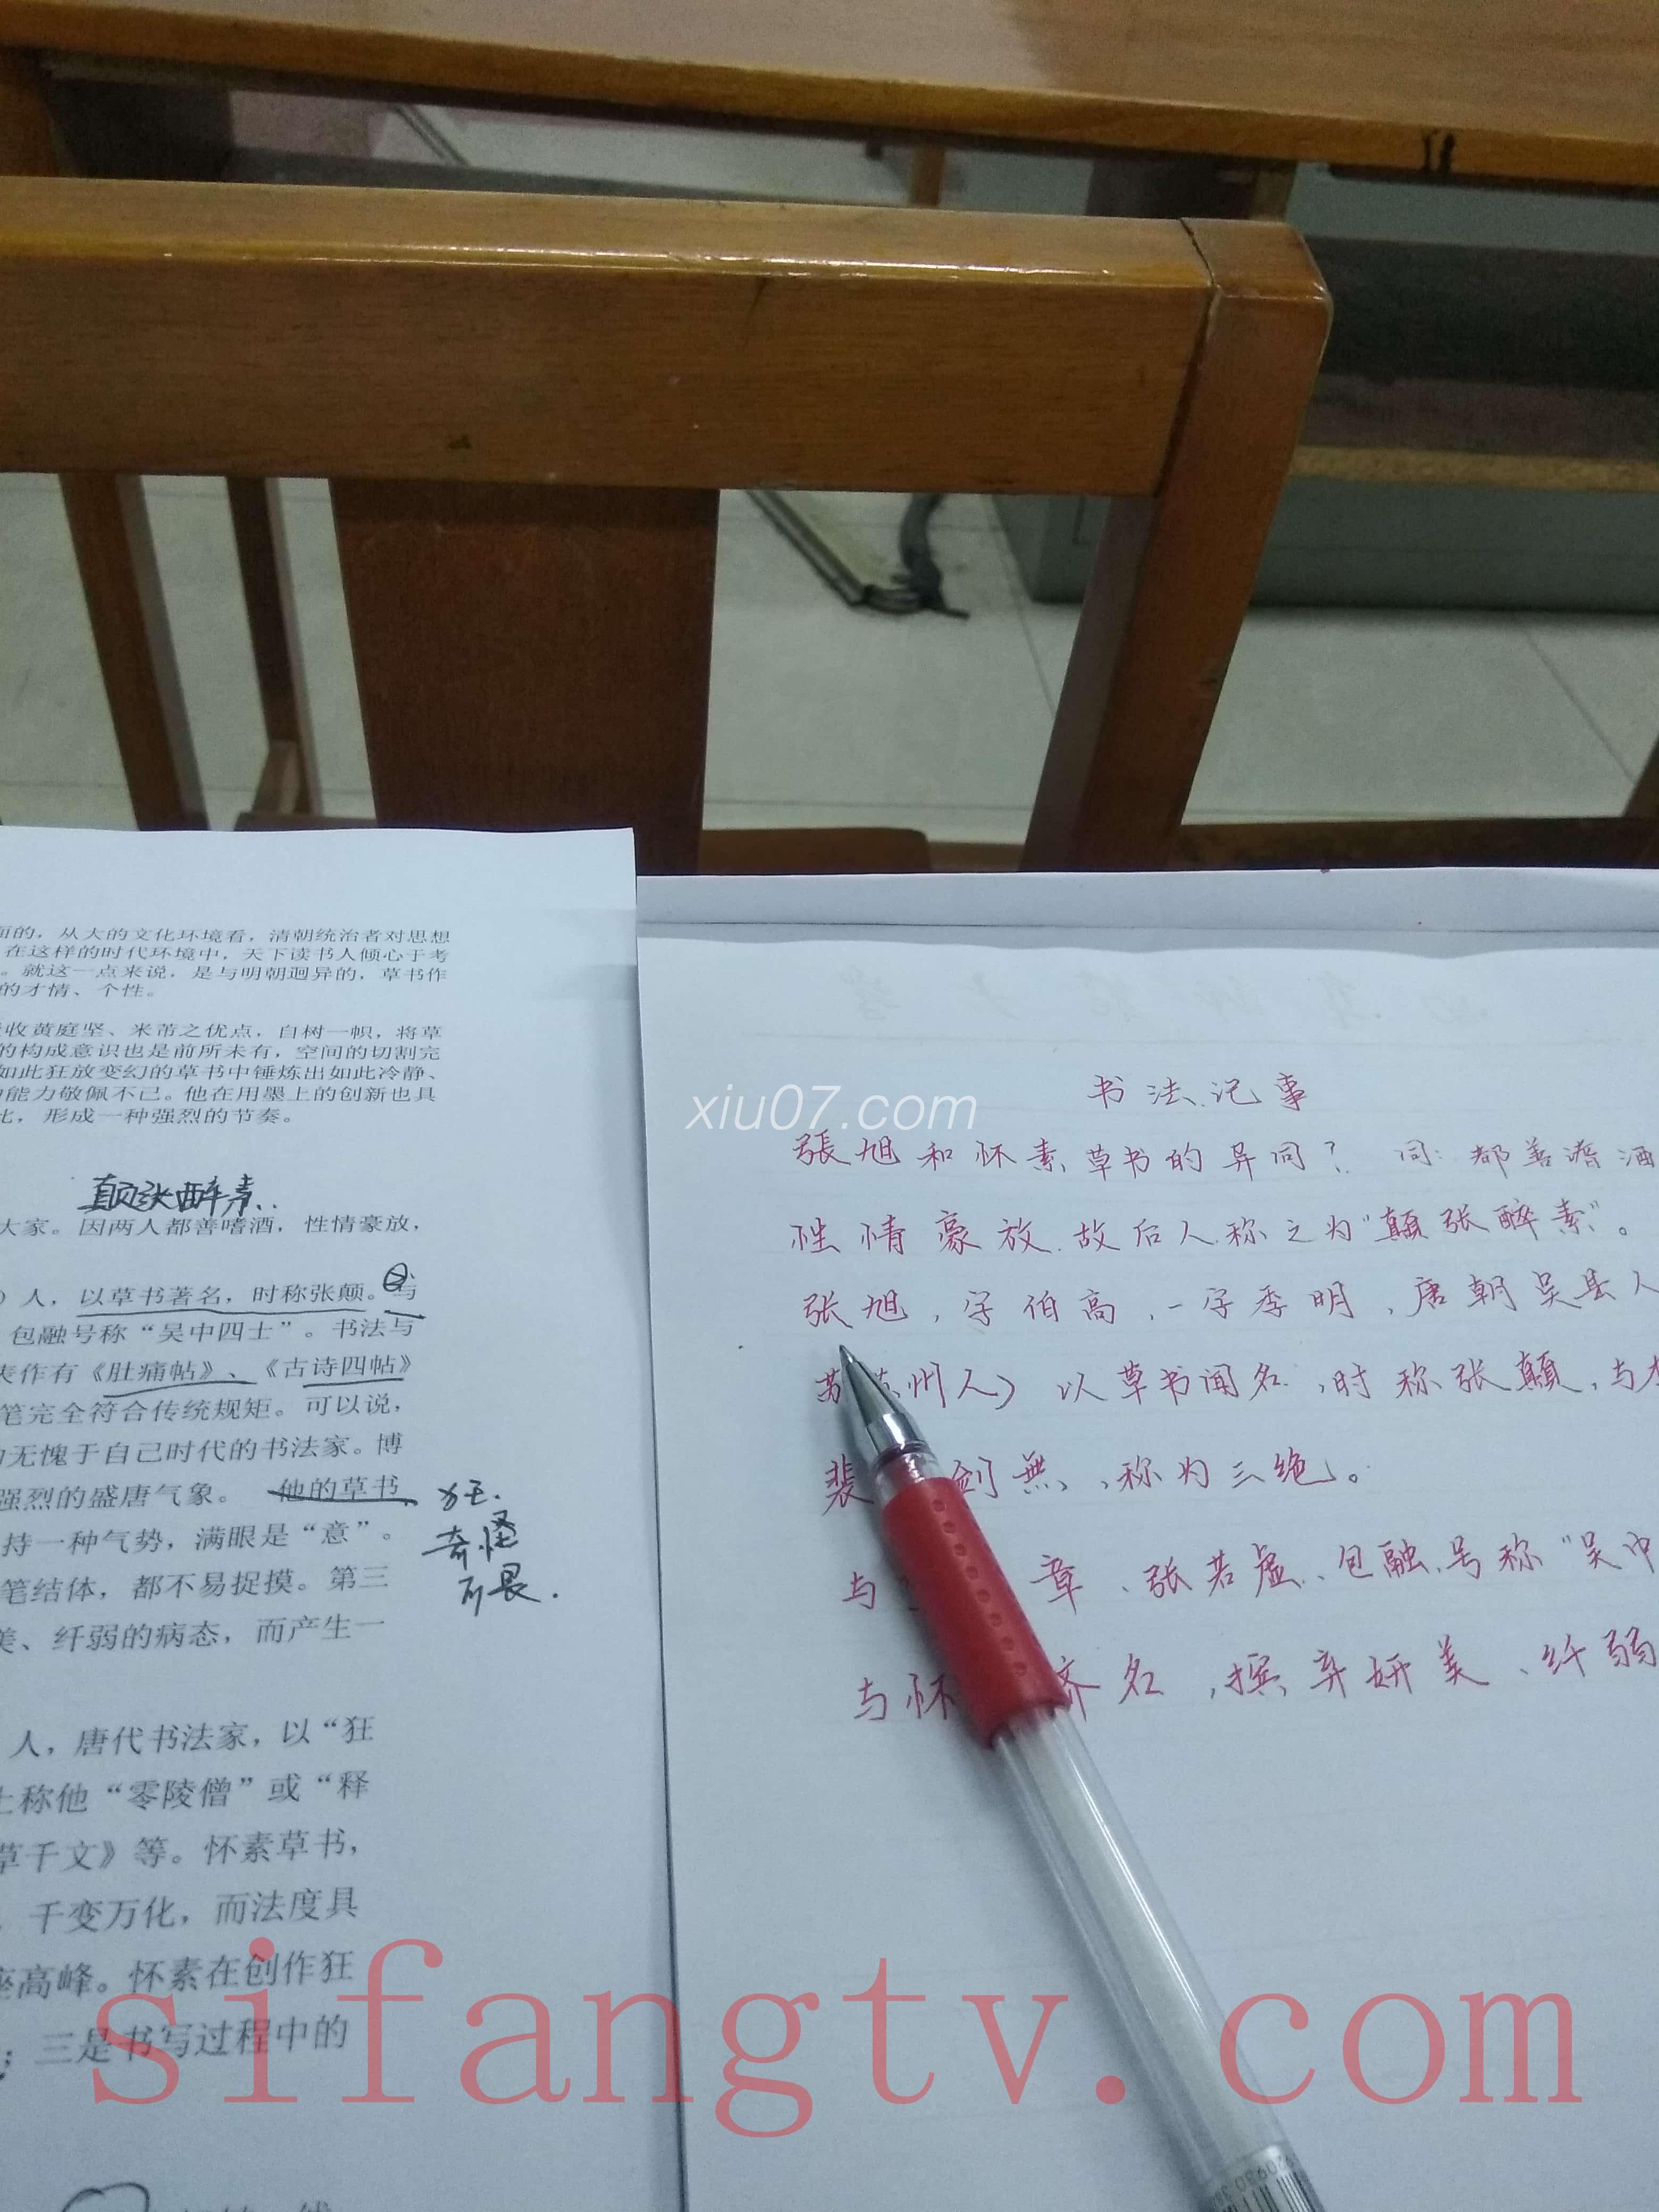 面的，从大的文化环境看，清朝统治者对思想
在这样的时代环境中，天下读书人倾心于考
。就这一点来说，是与明朝迥异的，草书作
的才情、个性。
收黄庭坚、米芾之优点，自树一帜，将草
的构成意识也是前所未有，空间的切割完
如此狂放变幻的草书中锤炼出如此冷静、
能力敬佩不已。他在用墨上的创新也具
比，形成一种强烈的节奏。
颠张醉素
大家。因两人都善嗜酒，性情豪放，
）人，以草书著名，时称张颠。②与
包融号称“吴中四士”。书法与
表作有《肚痛帖》、《古诗四帖》
笔完全符合传统规矩。可以说，
无愧于自己时代的书法家。博
强烈的盛唐气象。他的草书
狂.
持一种气势，满眼是“意”。
奇怪
笔结体，都不易捉摸。第三
可畏.
美、纤弱的病态，而产生一
人，唐代书法家，以“狂
称他“零陵僧”或“释
草千文》等。怀素草书，
千变万化，而法度具
座高峰。怀素在创作狂
；三是书写过程中的
书法记事
張旭和怀素草书的异同？ 同：都善嗜酒
性情豪放，故后人称之为“顛张醉素”。
张旭，字伯高，一字季明，唐朝吴县人
苏州人）以草书闻名，时称张顛，与
裴 剑舞，称为三绝。
与 章、张若虚、包融，号称“吴中
与怀 齐名，摈弃妍美、纤弱
xiu07.com
sifangtv.com